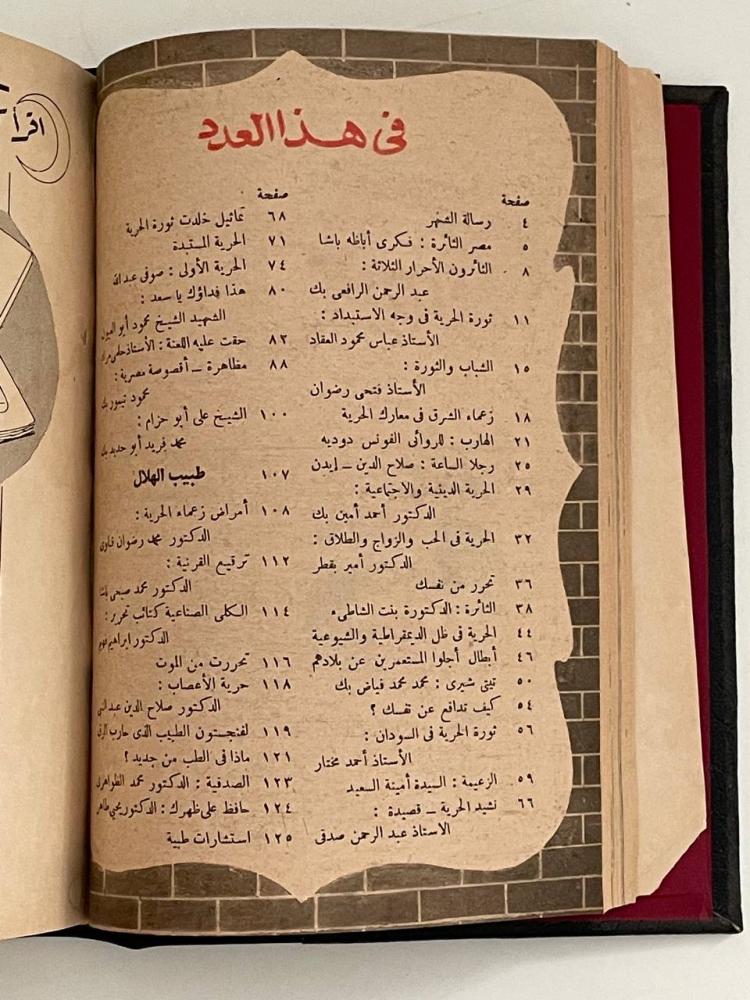 اقرأ
فى هذا العدد
صفحة
٤ رسالة الشهر
٥ مصر الثائرة : فكرى أباظه باشا
٨ الثائرون الأحرار الثلاثة :
عبد الرحمن الرافعى بك
١١ ثورة الحرية فى وجه الاستبداد :
الأستاذ عباس محمود العقاد
١٥ الشباب والثورة :
الأستاذ فتحى رضوان
١٨ زعماء الشرق فى معارك الحرية
٢١ الهارب : للروائى الفونس دوديه
٢٥ رجلا الساعة : صلاح الدين – إيدن
٢٩ الحرية الدينية والاجتماعية :
الدكتور أحمد أمين بك
٣٢ الحرية فى الحب والزواج والطلاق :
الدكتور أمير بقطر
٣٦ تحرر من نفسك
٣٨ الثائرة : الدكتورة بنت الشاطىء
٤٤ الحرية فى ظل الديمقراطية والشيوعية
٤٦ أبطال أجلوا المستعمرين عن بلادهم
٥٠ تيتى شيرى : محمد محمد فياض بك
٥٤ كيف تدافع عن نفسك ؟
٥٦ ثورة الحرية فى السودان :
الأستاذ أحمد مختار
٥٩ الزعيمة : السيدة أمينة السعيد
٦٦ نشيد الحرية – قصيدة :
الاستاذ عبد الرحمن صدقى
صفحة
٦٨ تماثيل خلدت ثورة الحرية
٧١ الحرية المستبدة
٧٤ الحرية الأولى : صوفى عبد الله
٨٠ هذا فداؤك يا سعد :
الشهيد الشيخ محمود أبو العيون
٨٣ حقت عليه اللعنة : الأستاذ حلمى مراد
٨٨ مظاهرة – أقصوصة مصرية :
محمود تيمور بك
١٠٠ الشيخ على أبو حزام :
محمد فريد أبو حديد بك
١٠٧ طبيب الهلال
١٠٨ أمراض زعماء الحرية :
الدكتور محمد رضوان قناوى
١١٢ ترقيع القرنية :
الدكتور محمد صبحى باشا
١١٤ الكلى الصناعية كتائب تحرير :
الدكتور ابراهيم فهيم
١١٦ تحررت من الموت
١١٨ حرية الأعصاب :
الدكتور صلاح الدين عبد النبى
١١٩ لفنجستون الطبيب الذى حارب الرق
١٢١ ماذا فى الطب من جديد ؟
١٢٣ الصدفية : الدكتور محمد الظواهرى
١٢٤ حافظ على ظهرك : الدكتور يحيى طاهر
١٢٥ استشارات طبية